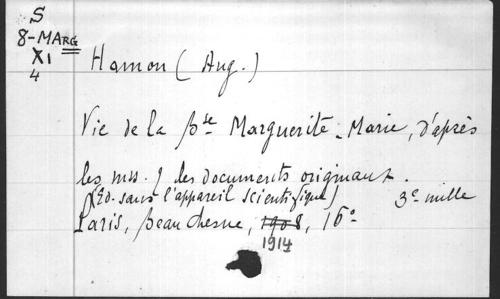 S
8-MARG
XI
4
Hamon (Aug.)
Vie de la Bse Marguerite-Marie, d'après
les mss. & les documents originaux.
(Ed. sans l'appareil scientifique) 3e mille
Paris, Beauchesne, 1908, 16°
1914